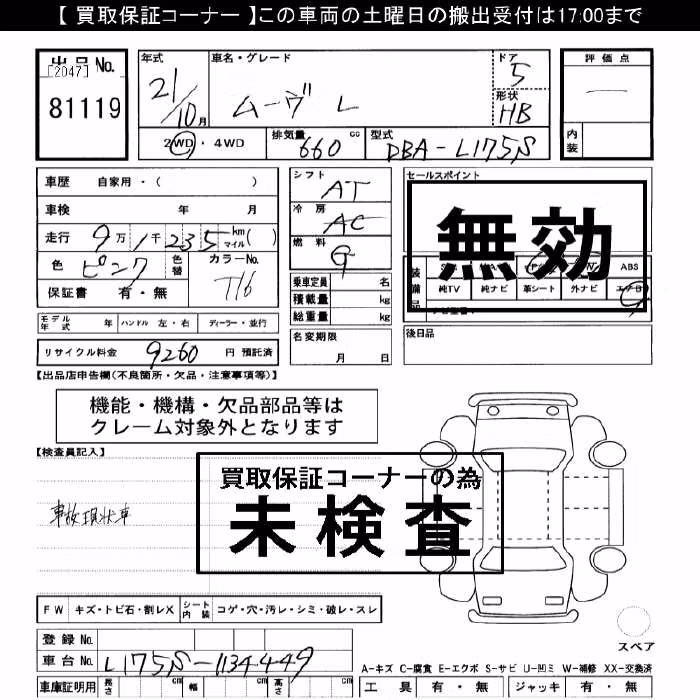 【 買取保証コーナー 】この車両の土曜日の搬出受付は17:00まで
出品 No.
[2047]
81119
年式
21/10月
車名・グレード
ムーヴ L
ドア
5
形状
HB
評価点
—
内装
2WD ・ 4WD
排気量
660 cc
型式
DBA-L175S
車歴 自家用・( )
車検 年 月
走行 9万1千235 km マイル ( )
色 ピンク 色替 カラーNo. T16
保証書 有・無
シフト
AT
冷房
AC
燃料
G
乗車定員 名
積載量 kg
総重量 kg
名変期限
月 日
セールスポイント
無効
装備品
ABS
純TV 純ナビ 革シート 外ナビ エアB
後日品
モデル年式 年 ハンドル 左・右 ディーラー・並行
リサイクル料金 9260 円 預託済
【出品店申告欄(不良箇所・欠品・注意事項等)】
機能・機構・欠品部品等は
クレーム対象外となります
【検査員記入】
買取保証コーナーの為
未検査
事故現状車
FW キズ・トビ石・割レX シート内装 コゲ・穴・汚レ・シミ・破レ・スレ
登録 No.
車台 No. L175S-1134449
車庫証明用 長さ cm 幅 cm 高さ cm
スペア
A-キズ C-腐食 E-エクボ S-サビ U-凹ミ W-補修 XX-交換済
工具 有・無 ジャッキ 有・無